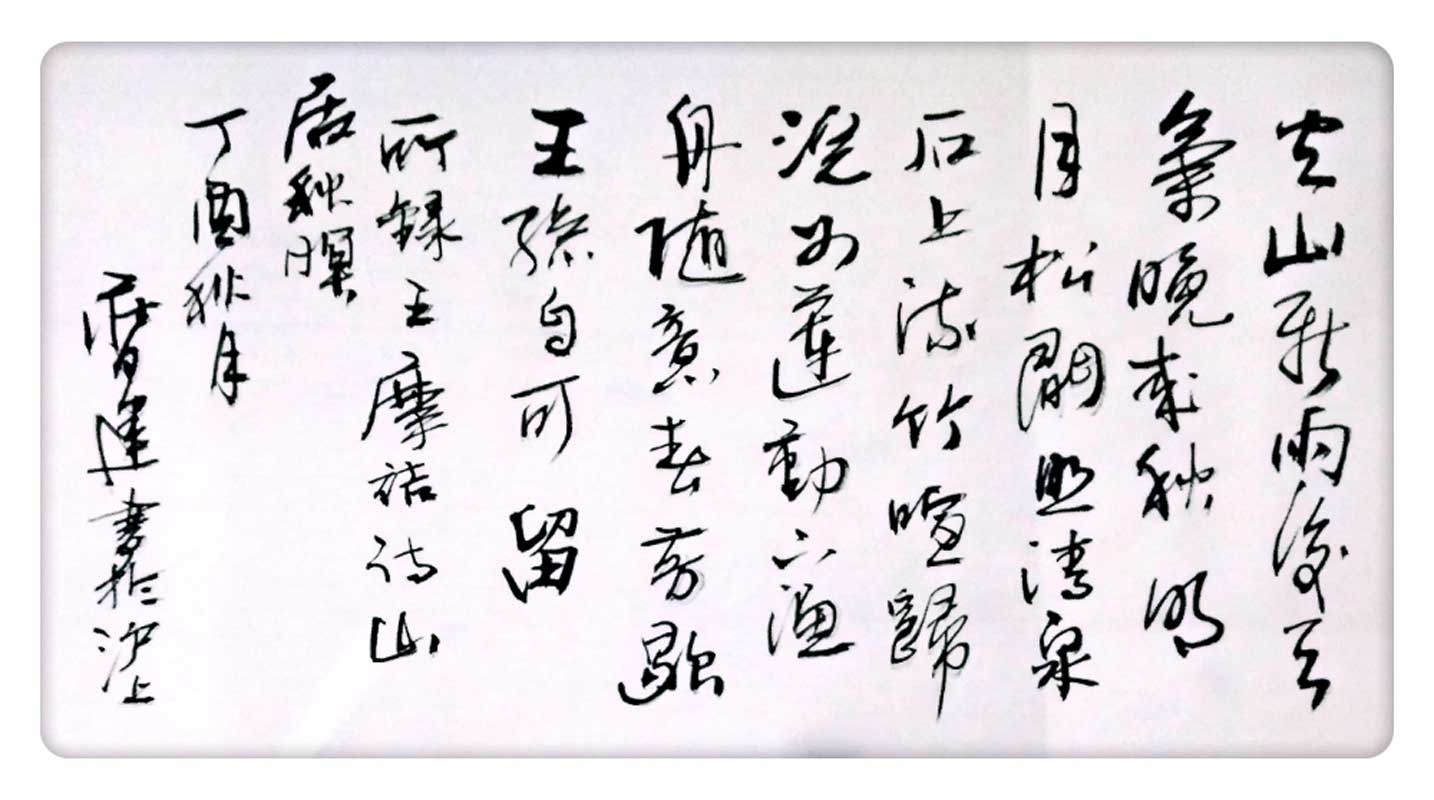 空山新雨後天
氣晚来秋明
月松間照清泉
石上流竹喧歸
浣女蓮動下漁
舟隨意春芳歇
王孫自可留
所録王摩詰詩山
居秋暝
丁酉秋月
書於沪上